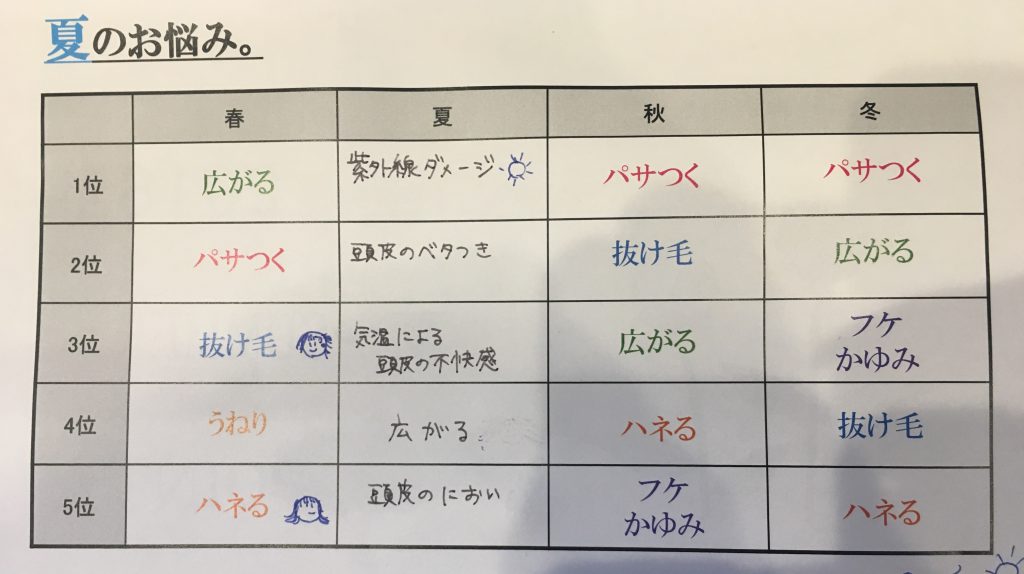 夏のお悩み。
春 夏 秋 冬
1位 広がる 紫外線ダメージ パサつく パサつく
2位 パサつく 頭皮のベタつき 抜け毛 広がる
3位 抜け毛 気温による 広がる フケ
頭皮の不快感 かゆみ
4位 うねり 広がる ハネる 抜け毛
5位 ハネる 頭皮のにおい フケ ハネる
かゆみ